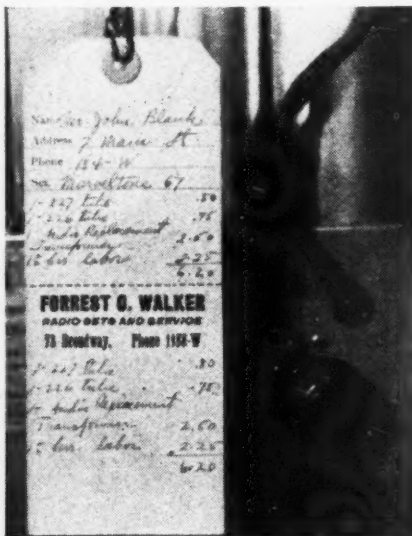 Name Mr. John Blank
Address 7 Main St
Phone 184-W
Set Marveltone 67
1-227 tube .80
1-226 tube .75
Audio Replacement
Transformer 2.50
1½ hrs labor 2.25
6.20
FORREST G. WALKER
RADIO SETS AND SERVICE
73 Broadway, Phone 1188-W
1-227 tube .80
1-226 tube .75
Audio Replacement
Transformer 2.50
hrs labor 2.25
6.20